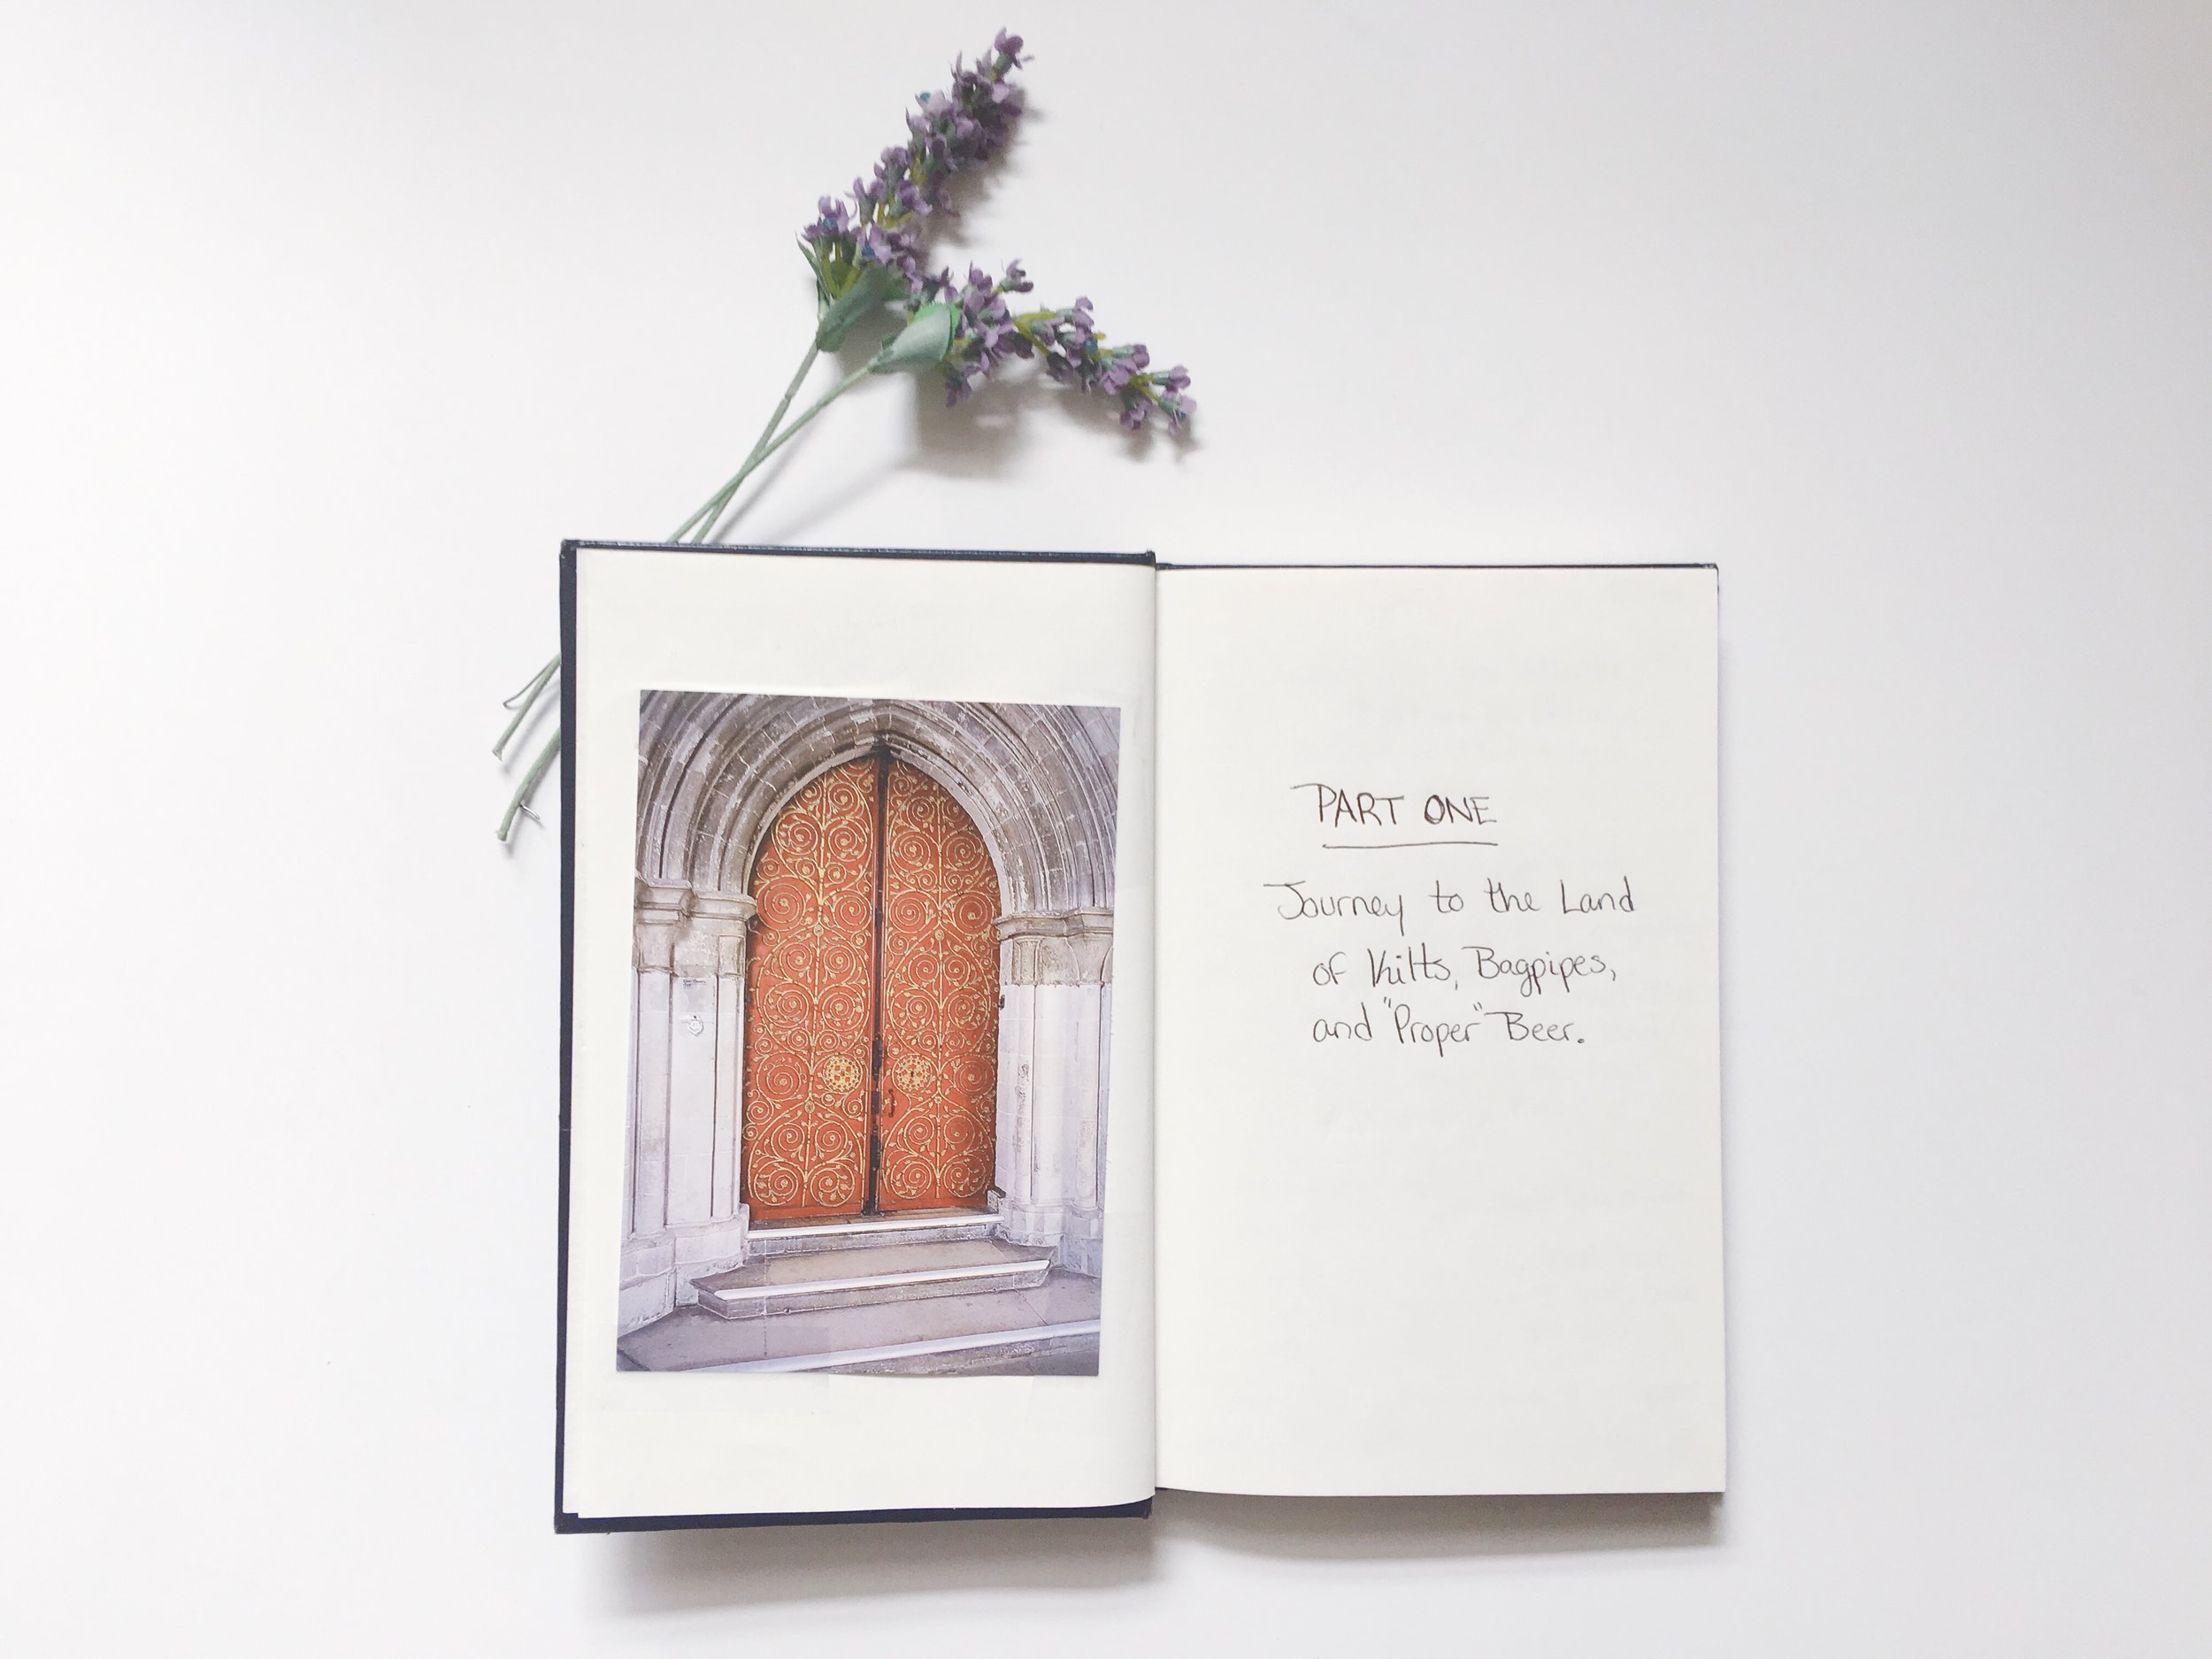 PART ONE
Journey to the Land
of Kilts, Bagpipes,
and "Proper" Beer.